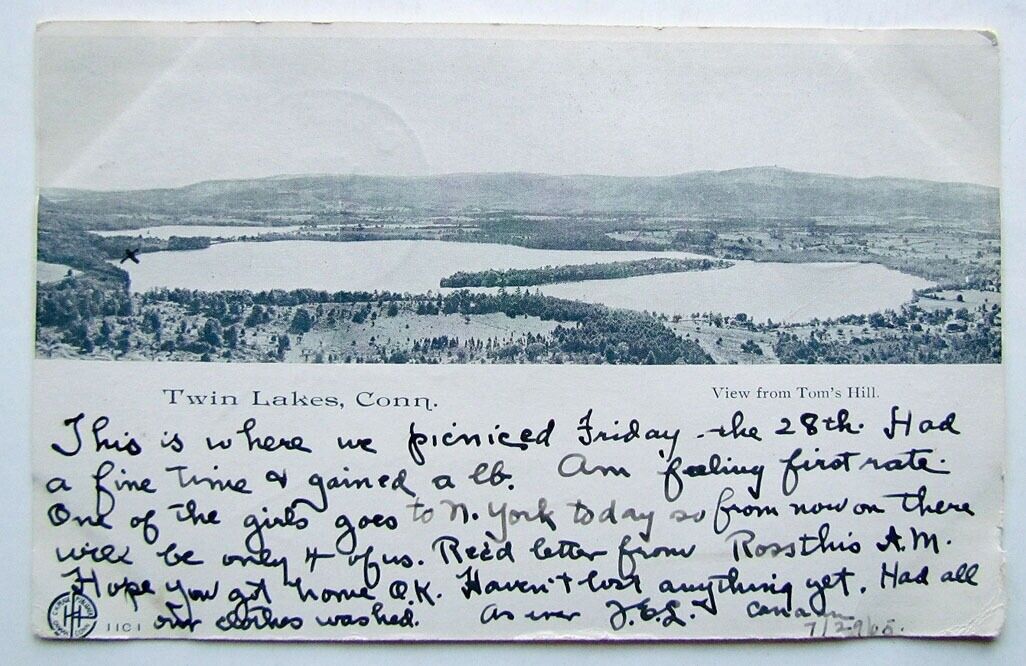 Twin Lakes, Conn.
View from Tom's Hill.
This is where we picniced Friday - the 28th. Had
a fine time & gained a lb. Am feeling first rate.
One of the girls goes to N. York today so from now on there
will be only 4 of us. Rec'd letter from Ross this A.M.
Hope you got home O.K. Haven't lost anything yet. Had all
our clothes washed. As ever J.E.L.
7/29/05.
1101